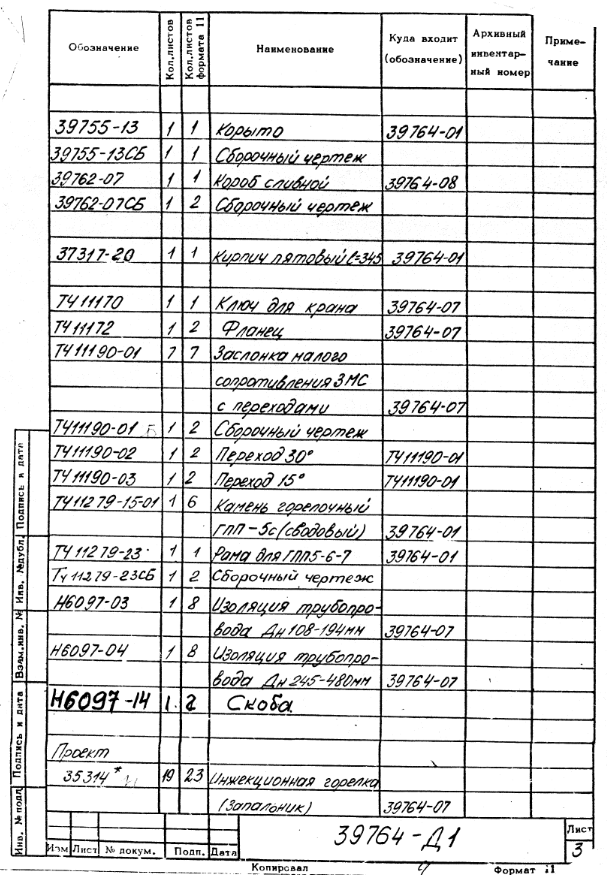 Обозначение Кол.листов Кол.листов формата 11 Наименование Куда входит (обозначение) Архивный инвентарный номер Примечание
39755-13 1 1 Корыто 39764-01
39755-13СБ 1 1 Сборочный чертеж
39762-07 1 1 Короб сливной 39764-08
39762-07СБ 1 2 Сборочный чертеж
37317-20 1 1 Кирпич пятовый ℓ=345 39764-01
ТЧ11170 1 1 Ключ для крана 39764-07
ТЧ11172 1 2 Фланец 39764-07
ТЧ11190-01 7 7 Заслонка малого
сопротивления ЗМС
с переходами 39764-07
ТЧ11190-01 1 2 Сборочный чертеж
ТЧ11190-02 1 2 Переход 30° ТЧ11190-01
ТЧ11190-03 1 2 Переход 15° ТЧ11190-01
ТЧ11279-15-01 1 6 Камень горелочный
ГПП-5с(сводовый) 39764-01
ТЧ11279-23 1 1 Рама для ГПП5-6-7 39764-01
ТЧ11279-23СБ 1 2 Сборочный чертеж
Н6097-03 1 8 Изоляция трубопро-
вода Дн 108-194мм 39764-07
Н6097-04 1 8 Изоляция трубопро-
вода Дн 245-480мм 39764-07
Н6097-14 1 2 Скоба
Проект
35314* 19 23 Инжекционная горелка
(Запальник) 39764-07
39764-Д1
Лист
3
Изм Лист № докум. Подп. Дата
Копировал Формат 11
Подпись и дата
Инв. №дубл.
Взам.инв. №
Подпись и дата
Инв. № подл